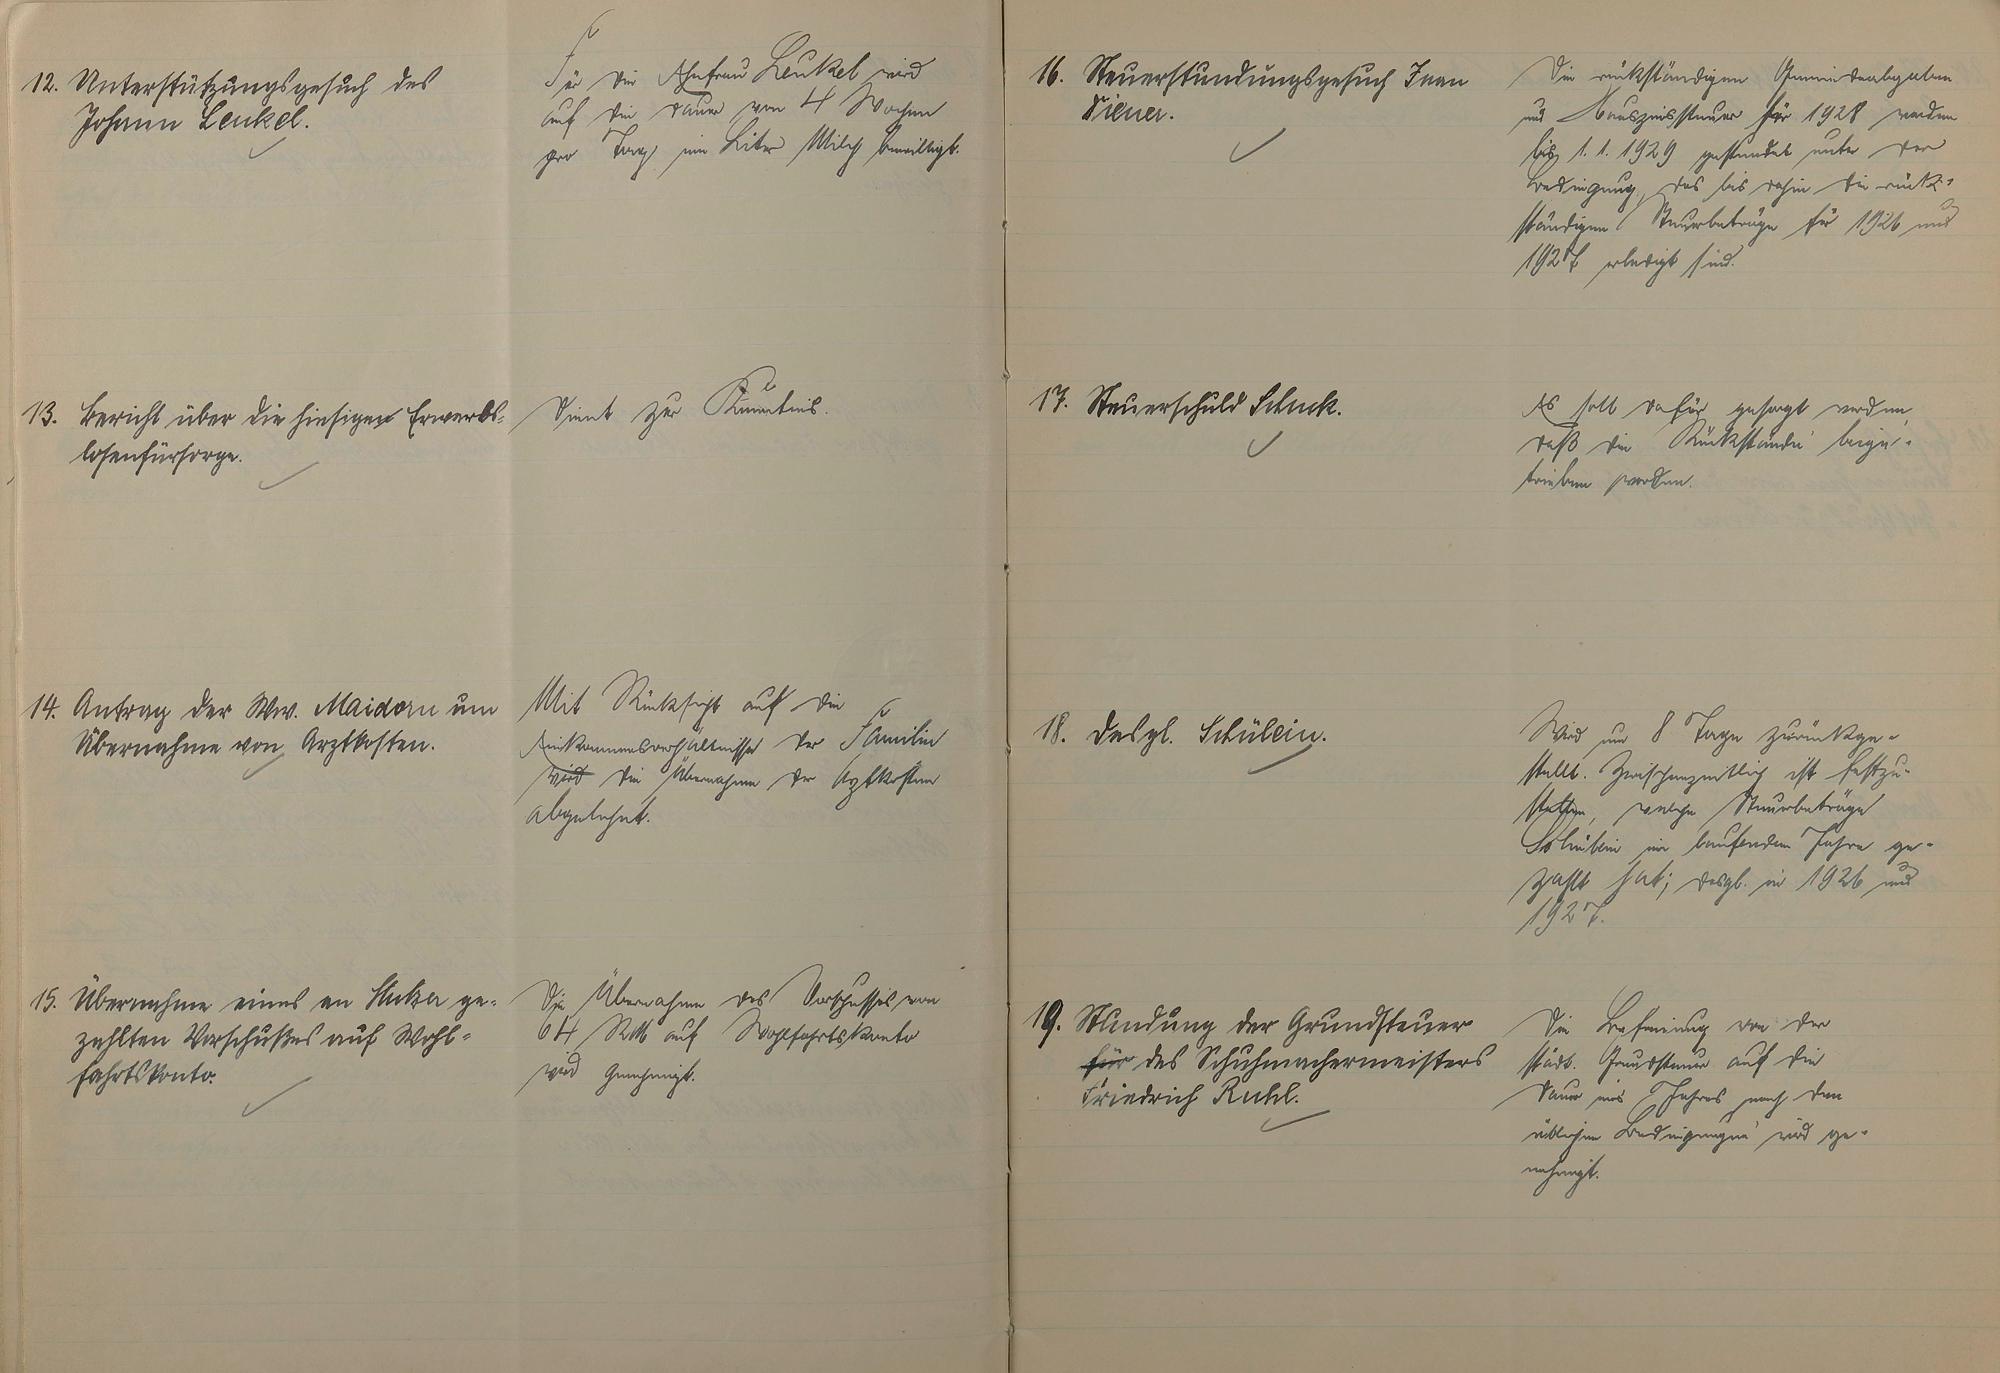 12. Unterstützungsgesuch des
Johann Leukel.
Für die Ehefrau Leukel wird
auf die Dauer von 4 Wochen
pro Tag ein Liter Milch bewilligt.
13. Bericht über die hiesigen Erwerbs-
losenfürsorge.
Dient zur Kenntnis.
14. Antrag der Ww. Maidorn um
Übernahme von Arztkosten.
Mit Rücksicht auf die
Einkommensverhältnisse der Familie
wird die Übernahme der Arztkosten
abgelehnt.
15. Übernahme eines an ge-
zahlten Vorschußes auf Wohl-
fahrtskonto.
Die Übernahme des Vorschusses von
64 RM auf Wohlfahrtskonto
wird genehmigt.
16. Steuerstundungsgesuch Jean
Diener.
Die rückständigen Gemeindeabgaben
und Hauszinssteuer für 1928 werden
bis 1.1.1929 gestundet unter der
Bedingung, das bis dahin die rück-
ständigen Steuerbeträge für 1926 und
1927 erledigt sind.
17. Steuerschuld Schuck.
Es soll dafür gesorgt werden,
daß die Rückstände beige-
trieben werden.
18. Desgl. Schülein.
Wird um 8 Tage zurückge-
stellt. Zwischenzeitlich ist festzu-
stellen, welche Steuerbeträge
Schülein im laufenden Jahre ge-
zahlt hat; desgl. in 1926 und
1927.
19. Stundung der Grundsteuer
für des Schuhmachermeisters
Friedrich Ruhl.
Die Befreiung von der
städt. Grundsteuer auf die
Dauer eines Jahres nach den
üblichen Bedingungen wird ge-
nehmigt.